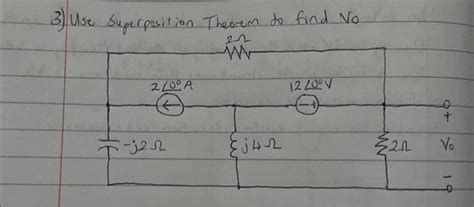 3) Use Superposition Theorem to find Vo
2Ω
2∠0° A
12∠0° V
+
-j2Ω
j4Ω
2Ω
Vo
-